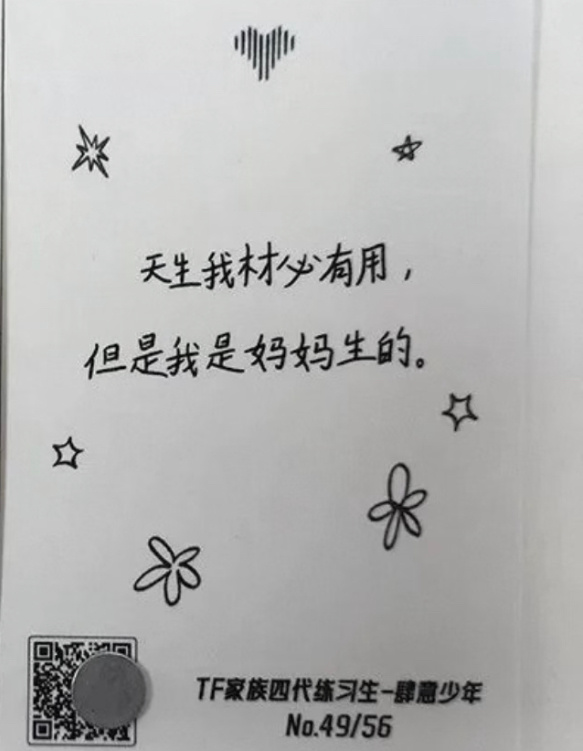 天生我材必有用，
但是我是妈妈生的。
TF家族四代练习生-肆意少年
No.49/56